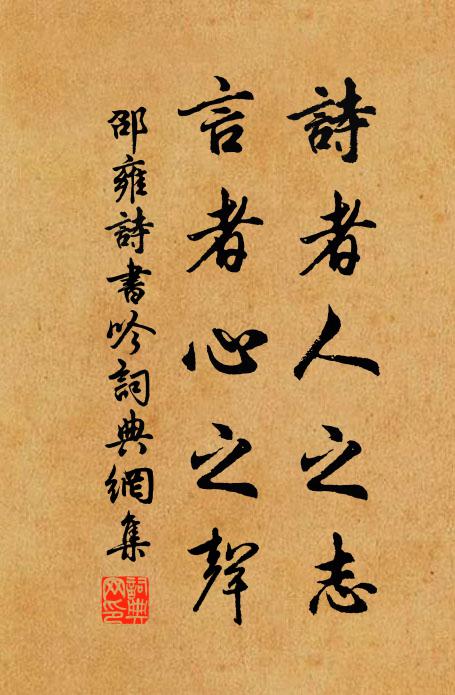 詩者人之志
言者心之聲
邵雍詩書吟詞典網集
詞典
网印